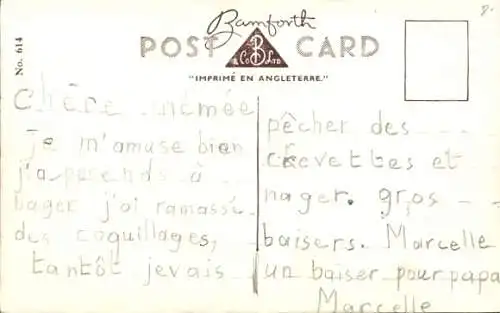 No. 614
Bamforth
POST CARD
B
& Co Ltd
"IMPRIMÉ EN ANGLETERRE."
Chère mémée
je m'amuse bien
j'apprends à
nager j'ai ramassé
des coquillages,
tantôt je vais
pêcher des
crevettes et
nager. gros
baisers. Marcelle
un baiser pour papa
Marcelle